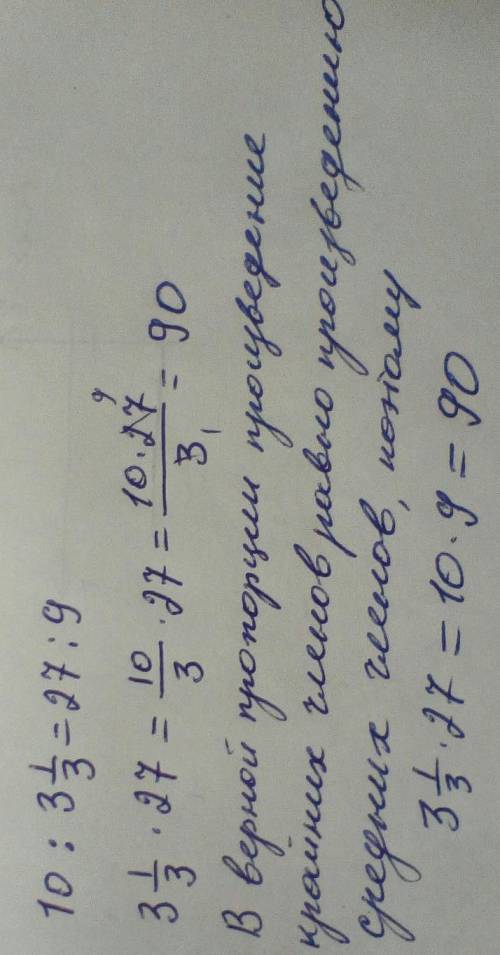 10 : 3 1/3 = 27 : 9
3 1/3 · 27 = 10/3 · 27 = 10·27 9/3 1 = 90
В верной пропорции произведение
крайних членов равно произведению
средних членов, потому
3 1/3 · 27 = 10 · 9 = 90